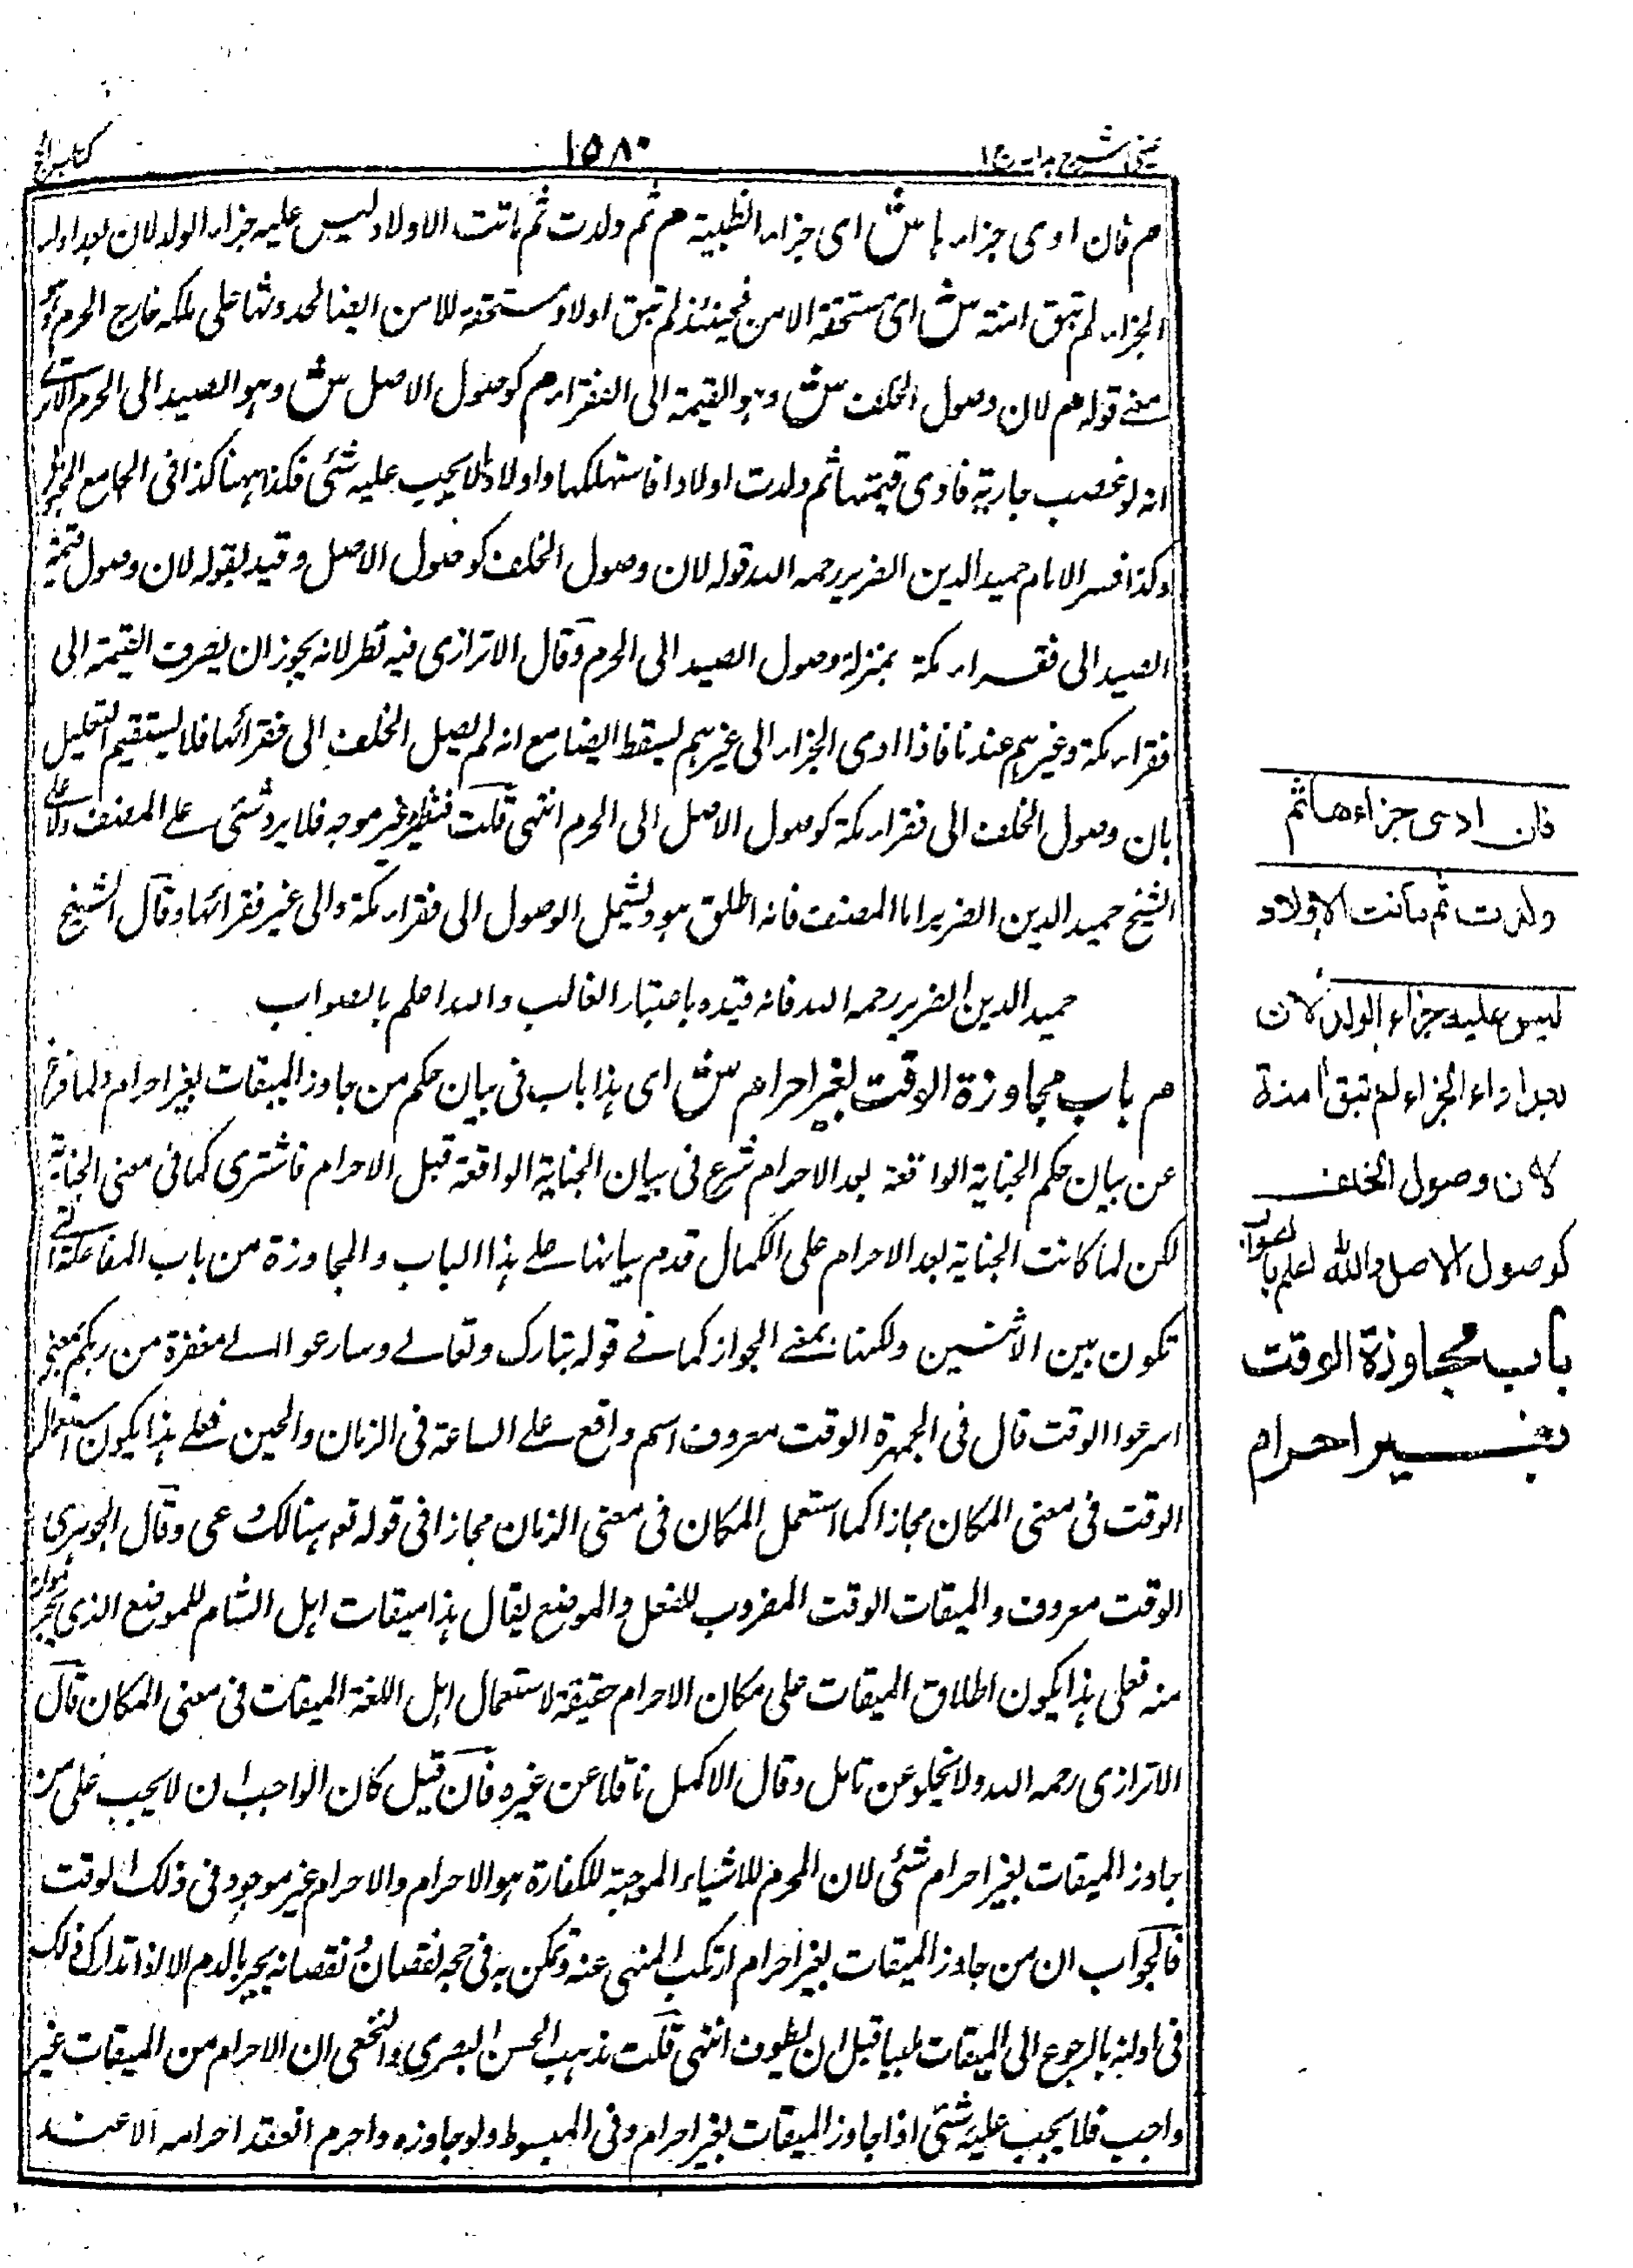 عینی شرح ہدایہ ج ١
١٥٨٠
کتاب الحج
م فان ادی جزاءہا ش ای جزاء الظبیۃ م ثم ولدت ثم ماتت الاولاد لیس علیہ جزاء الولد لان بعد اداء
الجزاء لم تبق امنۃ ش ای مستحقۃ الامن فحینئذ لم تبق اولادہا مستحقۃ للامن ایضا لحدوثہا علی ملکہ خارج الحرم
معنے قولہ م لان وصول الخلف ش وہو القیمۃ الی الفقراء م کوصول الاصل ش وہو الصید الی الحرم الا تری
انہ لو غصب جاریۃ فادی قیمتہا ثم ولدت اولادا فاستہلکہا واولادہا لا یجب علیہ شئی فکذا ہہنا کذا فی الجامع
وکذا فسر الامام حمید الدین الضریر رحمہ اللہ قولہ لان وصول الخلف کوصول الاصل وقید بقولہ لان وصول قیمۃ
الصید الی فقراء مکۃ بمنزلۃ وصول الصید الی الحرم وقال الاترازی فیہ نظر لانہ یجوز ان یصرف القیمۃ الی
فقراء مکۃ وغیرہم عندنا فاذا ادی الجزاء الی غیرہم یسقط ایضا مع انہ لم یصل الخلف الی فقرائہا فلا یستقیم التعلیل
بان وصول الخلف الی فقراء مکۃ کوصول الاصل الی الحرم انتہی قلت نظرہ غیر موجہ فلا یرد شئی علے المصنف ولا علی
الشیخ حمید الدین الضریر اما المصنف فانہ اطلق ہو ویشمل الوصول الی فقراء مکۃ والی غیر فقرائہا وقال الشیخ
حمید الدین الضریر رحمہ اللہ فانہ قیدہ باعتبار الغالب واللہ اعلم بالصواب
م باب مجاوزۃ الوقت بغیر احرام ش ای ہذا باب فی بیان حکم من جاوز المیقات بغیر احرام ولما فرغ
عن بیان حکم الجنایۃ الواقعۃ بعد الاحرام شرع فی بیان الجنایۃ الواقعۃ قبل الاحرام فاشتری کما فی معنی الجنایۃ
لکن لما کانت الجنایۃ بعد الاحرام علی الکمال قدم بیانہا علے ہذا الباب والمجاوزۃ من باب المفاعلۃ التی
تکون بین الاثنین ولکنہا بمعنے الجواز کما فے قولہ تبارک وتعالے وسارعوا الے مغفرۃ من ربکم بمعنی
اسرعوا الوقت قال فی الجمہرۃ الوقت معروف اسم واقع علے الساعۃ فی الزمان والحین فعلے ہذا یکون استعمال
الوقت فی معنی المکان مجازا کما استعمل المکان فی معنی الزمان مجازا فی قولہ تع ہنالک دعی وقال الجوہری
الوقت معروف والمیقات الوقت المضروب للفعل والموضع یقال ہذا میقات اہل الشام للموضع الذی یحرمون
منہ فعلی ہذا یکون اطلاق المیقات علی مکان الاحرام حقیقۃ لاستعمال اہل اللغۃ المیقات فی معنی المکان قال
الاترازی رحمہ اللہ ولا یخلو عن تامل وقال الاکمل ناقلا عن غیرہ فان قیل کان الواجب ان لا یجب علی من
جاوز المیقات بغیر احرام شئی لان المحرم للاشیاء الموجبۃ للکفارۃ ہو الاحرام والاحرام غیر موجود فی ذلک الوقت
فالجواب ان من جاوز المیقات بغیر احرام ارتکب المنہی عنہ وتمکن بہ فی حجہ نقصان ونقصانہ یجبر بالدم الا اذا تدارک ذلک
فی اوانہ بالرجوع الی المیقات ملبیا قبل ان یطوف انتہی قلت مذہب الحسن البصری والنخعی ان الاحرام من المیقات غیر
واجب فلا یجب علیہ شئی اذا جاوز المیقات بغیر احرام وفی المبسوط ولو جاوزہ واحرم انعقد احرامہ الا عند
فان ادی جزاءها ثم
ولدت ثم ماتت الاولاد
لیس علیه جزاء الولد لان
بعد اداء الجزاء لم تبق آمنة
لان وصول الخلف
کوصول الاصل والله اعلم بالصواب
باب مجاوزة الوقت
بغیر احرام